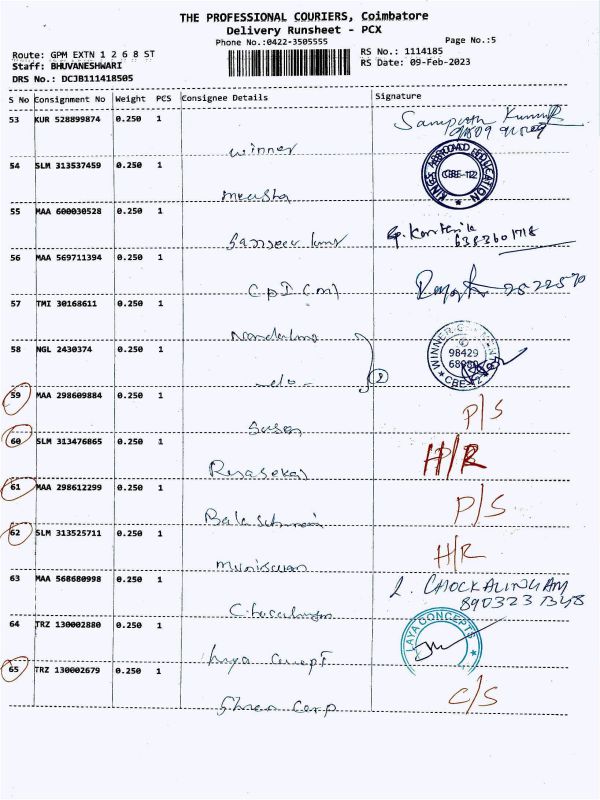 THE PROFESSIONAL COURIERS, Coimbatore
Delivery Runsheet - PCX
Phone No.:0422-3505555
Page No.:5
Route: GPM EXTN 1 2 6 8 ST
RS No.: 1114185
Staff: BHUVANESHWARI
RS Date: 09-Feb-2023
DRS No.: DCJB111418505
S No Consignment No Weight PCS Consignee Details Signature
53 KUR 528899874 0.250 1
winner
54 SLM 313537459 0.250 1
CBE-12
55 MAA 600030528 0.250 1
6383601718
56 MAA 569711394 0.250 1
57 TMI 30168611 0.250 1
58 NGL 2430374 0.250 1
WINNER GARMENTS
98429
CBE-12
- do -
2
59 MAA 298609884 0.250 1
P/S
60 SLM 313476865 0.250 1
H/R
61 MAA 298612299 0.250 1
P/S
62 SLM 313525711 0.250 1
H/R
63 MAA 568680998 0.250 1
CHOCKALINGAM
64 TRZ 130002880 0.250 1
LAYA CONCEPTS
Laya Concept
65 TRZ 130002679 0.250 1
C/S
Shree Corp